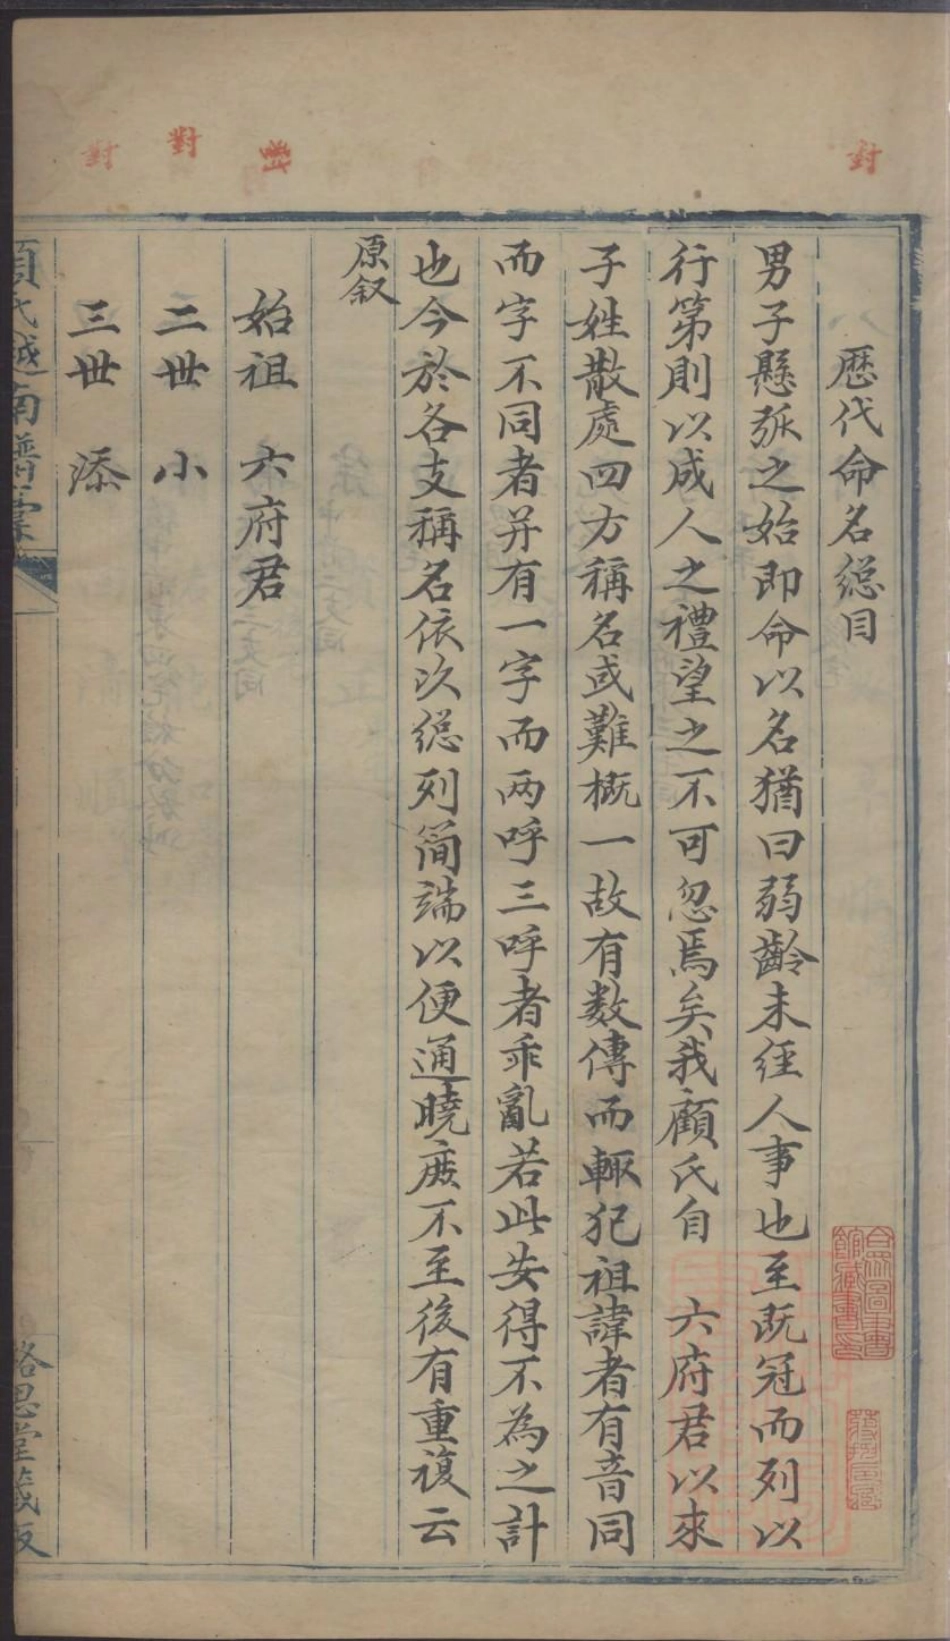 對
對
對
對
歷代命名總目
男子懸弧之始即命以名猶曰弱齡未經人事也至既冠而列以
行第則以成人之禮望之不可忽焉矣我顧氏自 六府君以來
子姓散處四方稱名或難概一故有数傳而輒犯祖諱者有音同
而字不同者并有一字而两呼三呼者乖亂若此安得不為之計
也今於各支稱名依次總列简端以便通曉庶不至後有重複云
原叙
始祖 六府君
二世 小
三世 添
顧氏越南譜彙
恪思堂藏板